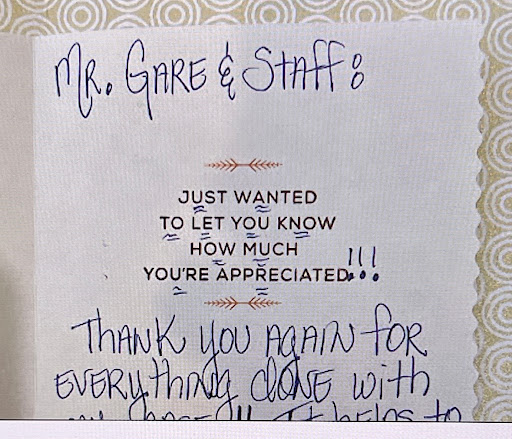 Mr. Gare & Staff:
JUST WANTED
TO LET YOU KNOW
HOW MUCH
YOU'RE APPRECIATED!!!
Thank you again for
everything done with